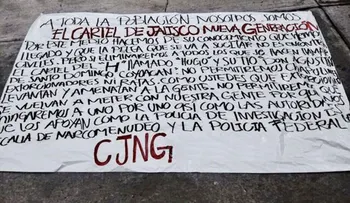 A TODA LA POBLACIÓN NOSOTROS SOMOS
EL CARTEL DE JALISCO NUEVA GENERACIÓN
POR ESTE MEDIO HACEMOS DE SU CONOCIMIENTO
LLEGADO Y QUE LA PELEA QUE SE VA A SUCITAR NO ES EN CONTRA
PERO SI ELIMINAREMOS A TODOS LOS QUE SE HACEN LLAMAR
EL CARTEL DEL "LLAMADO" "HUGO" Y SU TIO DON AGUSTIN
DE SANTO DOMINGO COYOACAN" NO PERMITIREMOS
EXTORCIONADORES NI RATAS COMO USTEDES QUE
LEVANTAN Y AMENAZAN A LA GENTE. NO PERMITIREMOS QUE
SE VUELVAN A METER CON NUESTRA GENTE
UNO POR UNO ASI COMO LAS AUTORIDADES
QUE LOS APOYAN COMO LA POLICIA DE INVESTIGACIÓN
FISCALIA DE NARCOMENUDEO Y LA POLICIA FEDERAL
CJNG